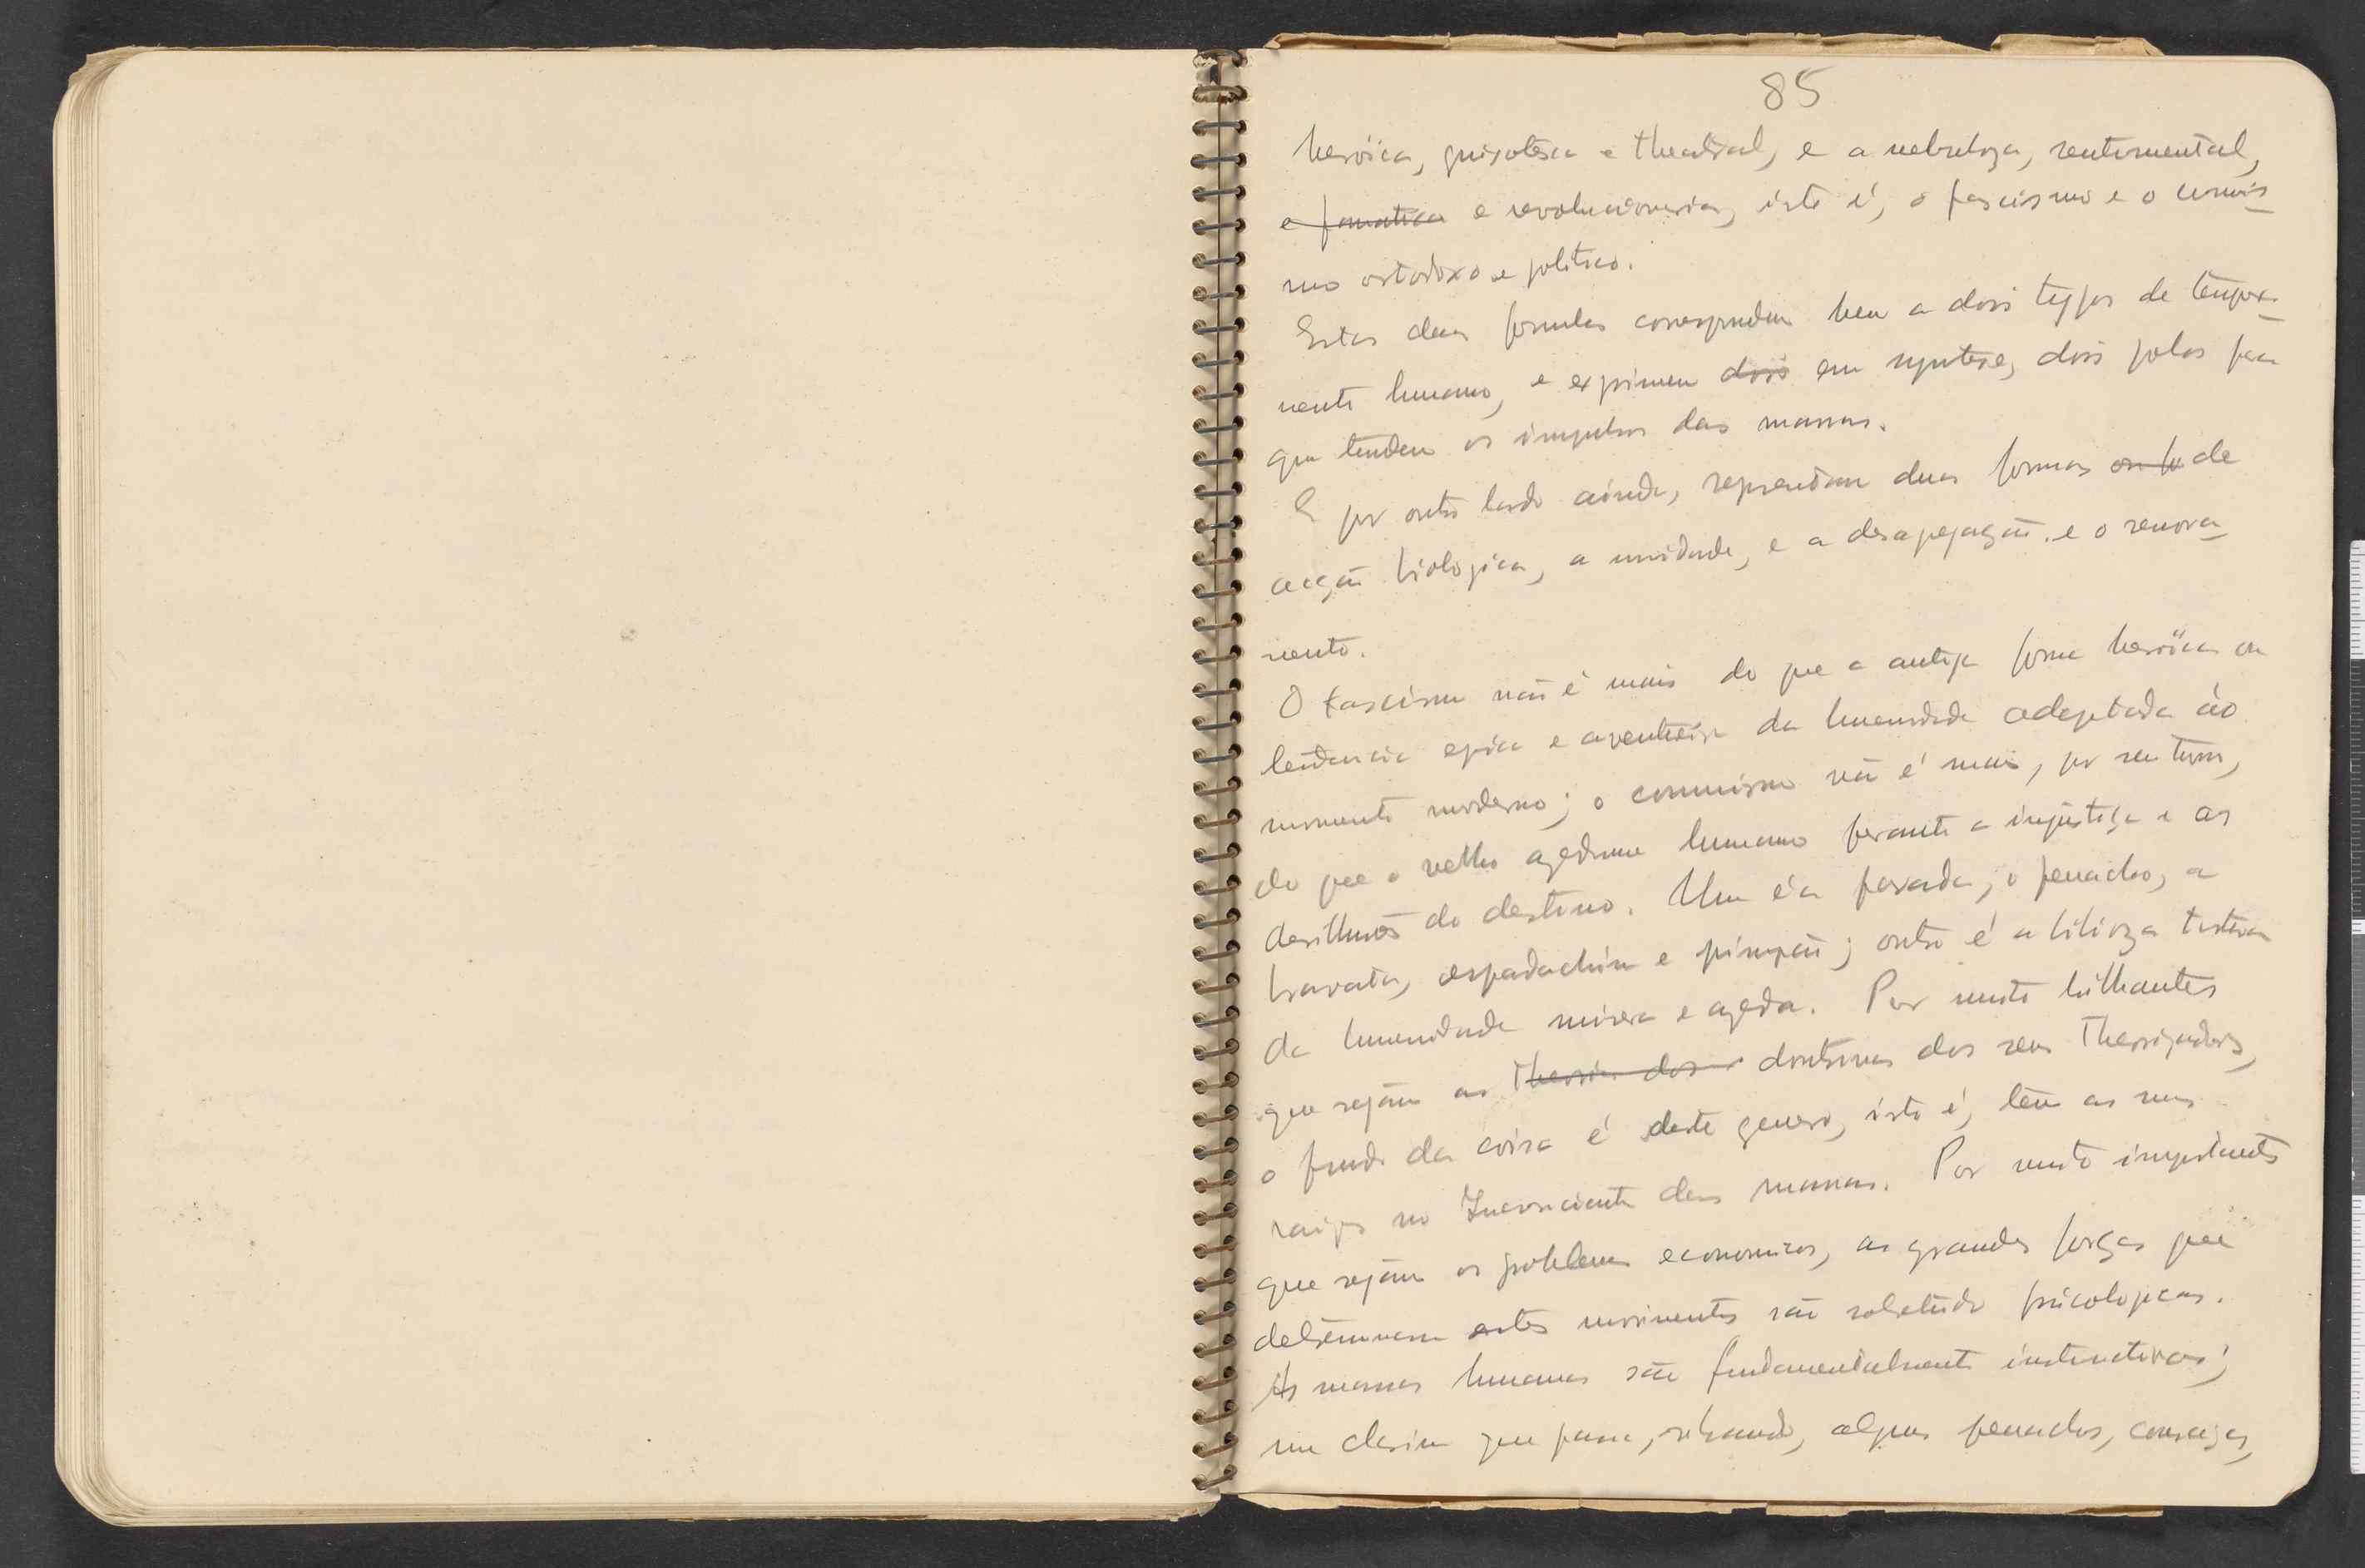 85
heroïca, quixotesca e theatral, e a nebuloza, sentimental,
e fanatica e revolucionaria, isto é, o fascismo e o comunis
mo ortodoxo e politico.
Estas duas formulas correspondem bem a dois typos de tempera
mento humano, e exprimem dois em syntese, dois polos para
que tendem os impulsos das massas.
E por outro lado ainda, representam duas formas de
acção biologica, a unidade, e a desagregação e o renova
mento.
O fascismo não é mais do que a antiga forma heroïca ou
tendencia epica e aventureira da humanidade adeptada áo
momento moderno; o comunismo não é mais, por seu turno,
do que o velho azedume humano perante a injustiça e as
desillusões do destino. Um é a parada, o penacho, a
bravata, espadachim e pimpão; outro é a biliоza tristeza
da humanidade misera e azeda. Por muito brilhantes
que sejam as theorias dos doutrinas dos seus theorizadores,
o fundo da coisa é deste genero, isto é, tem as suas
raizes no Inconsciente das massas. Por muito importantes
que sejam os problemas economicos, as grandes forças que
determinam estes movimentos são sobretudo psicologicas.
As massas humanas são fundamentalmente instinctivas;
um clarim que passa, vibrando, alguns penachos, couraças,